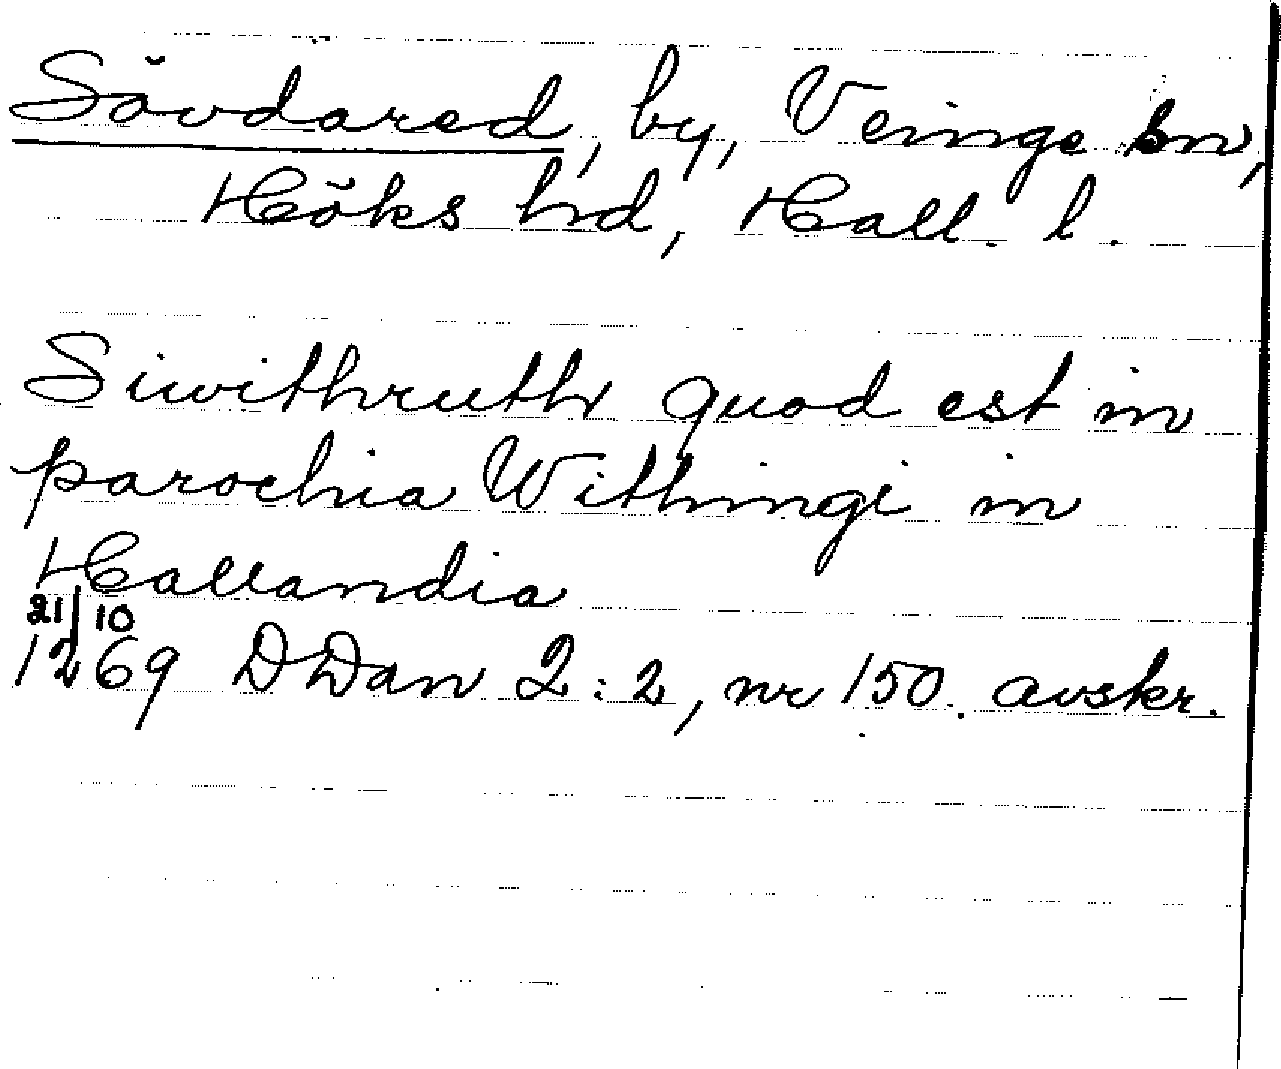 Sövdared, by, Veinge sn,
Höks hd, Hall. l.
Siwithruth quod est in
parochia Withingi in
Hallandia
21/10
1269 DDan 2:2, nr 150. avskr.